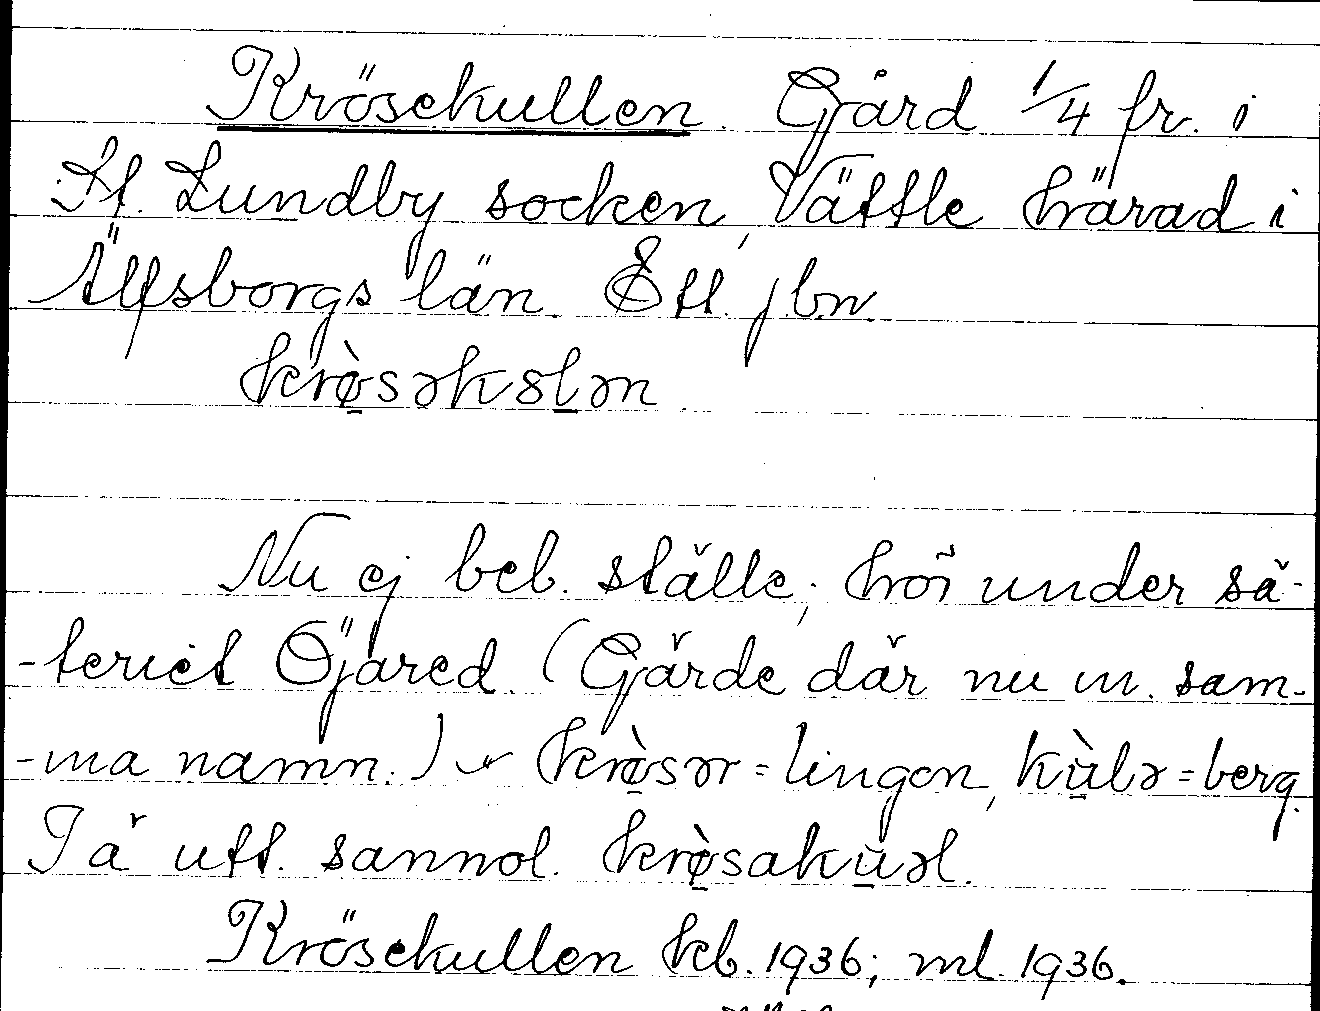 Krösekullen. Gård 1/4 fr. i
St. Lundby socken, Vättle härad i
Älfsborgs län. Ett jbn
krø̀səkslən
Nu ej beb. ställe; hör under sä-
-teriet Öjared. (Gärde där nu m. sam-
-ma namn.) krø̀sər = lingon, kùlə = berg.
Tä utt. sannol. krø̀sakuəl.
Krösekullen kb. 1936; ml. 1936.